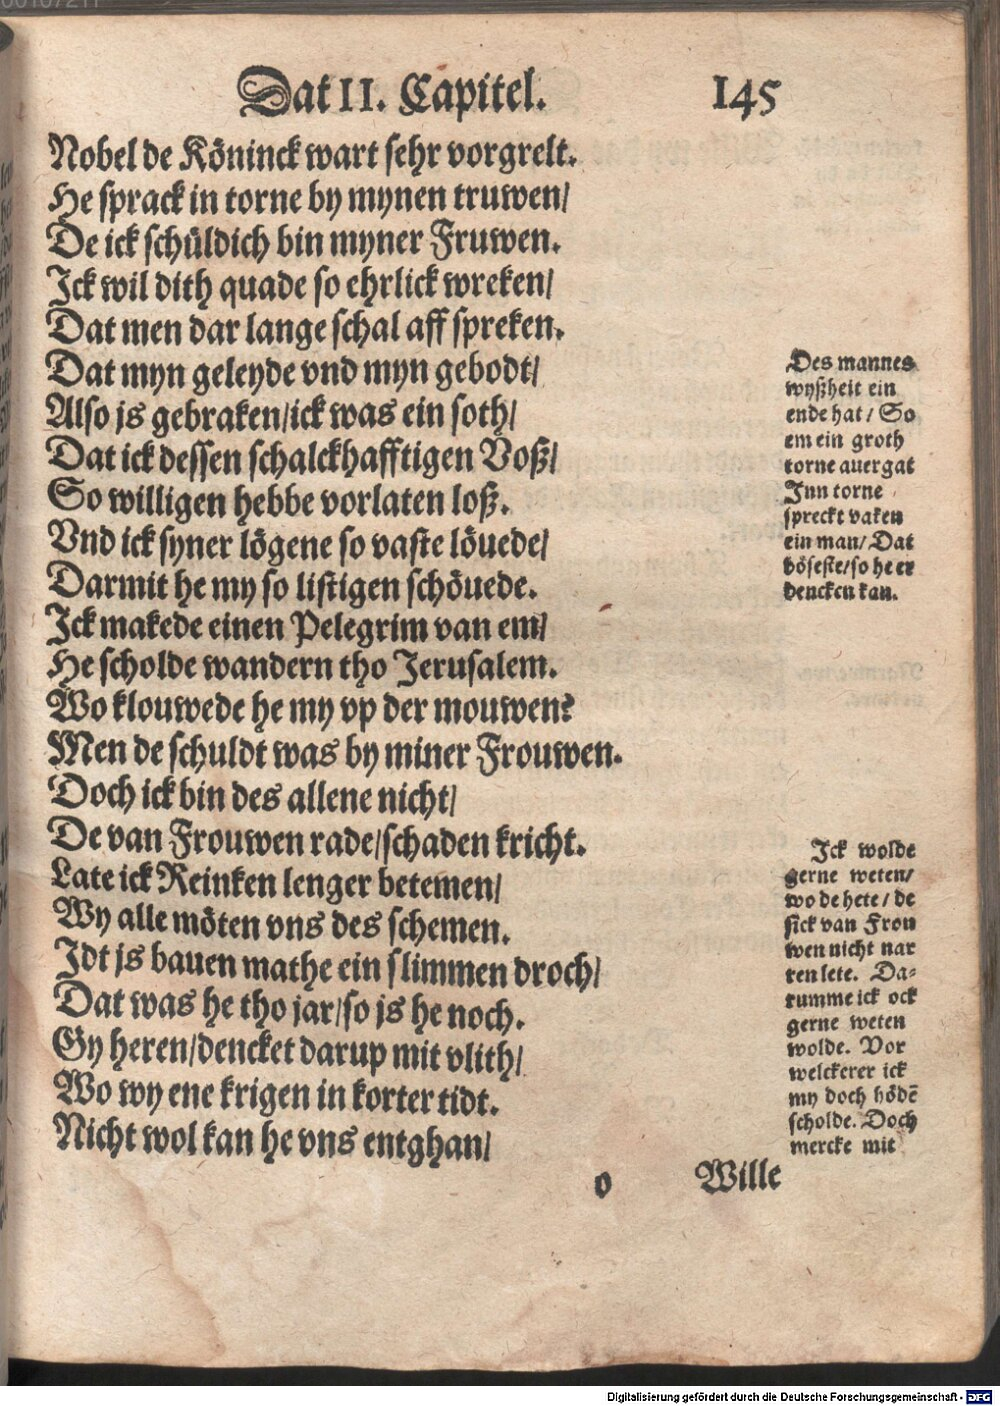 Dat II. Capitel. 145
Nobel de Köninck wart sehr vorgrelt.
He sprack in torne by mynen truwen/
De ick schüldich bin myner Fruwen.
Ick wil dith quade so ehrlick wreken/
Dat men dar lange schal aff spreken.
Dat myn geleyde vnd myn gebodt/
Also js gebraken/ick was ein soth/
Dat ick dessen schalckhafftigen Voß/
So willigen hebbe vorlaten loß.
Vnd ick syner lögene so vaste löuede/
Darmit he my so listigen schöuede.
Ick makede einen Pelegrim van em/
He scholde wandern tho Jerusalem.
Wo klouwede he my vp der mouwen?
Men de schuldt was by miner Frouwen.
Doch ick bin des allene nicht/
De van Frouwen rade/schaden kricht.
Late ick Reinken lenger betemen/
Wy alle möten vns des schemen.
Idt js bauen mathe ein slimmen droch/
Dat was he tho jar/so js he noch.
Gy heren/dencket darup mit vlith/
Wo wy ene krigen in korter tidt.
Nicht wol kan he vns entghan/
Des mannes
wyßheit ein
ende hat / So
em ein groth
torne auergat
Inn torne
spreckt vaken
ein man/ Dat
böseste/so he er
dencken kan.
Ick wolde
gerne weten/
wo de hete / de
sick van Frou
wen nicht nar
ren lete. Da-
rumme ick ock
gerne weten
wolde. Vor
welckerer ick
my doch hödē
scholde. Doch
mercke mit
o Wille
Digitalisierung gefördert durch die Deutsche Forschungsgemeinschaft - DFG